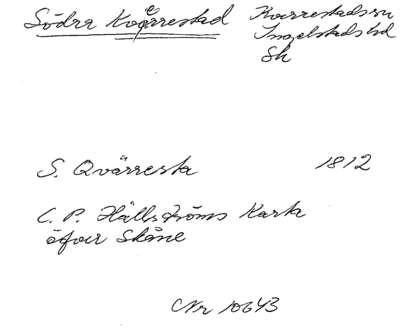 Södra Kverrestad Kverrestads sn
Ingelstads hd
Sk
S. Qvärresta 1812
C. P. Hällströms Karta
öfver Skåne
Nr 10643